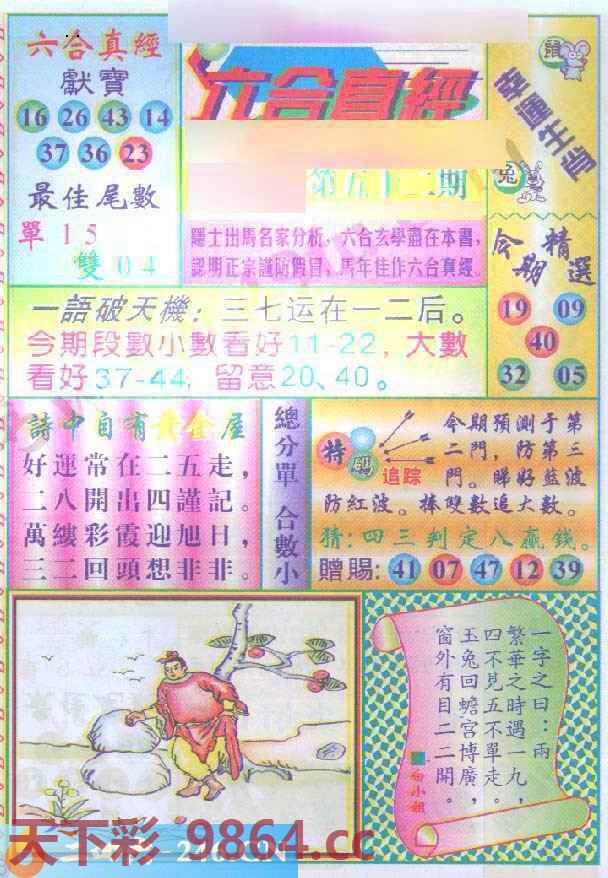 六合真經
獻寶
16 26 43 14
37 36 23
最佳尾數
單15
雙04
六合真經
第五十二期
隱士出馬名家分析，六合玄學蘊在本書，
認明正宗謹防假冒，馬年佳作六合真經。
鼠
幸運生肖
兔
今期精選
19 09
40
32 05
一語破天機：三七运在一二后。
今期段數小數看好11-22，大數
看好37-44，留意20、40。
詩中自有黃金屋
好運常在二五走，
二八開出四謹記。
萬縷彩霞迎旭日，
三二回頭想非非。
總分單 合數小
特碼追踪
今期預測于第
二門，防第三
門。睇好藍波
防紅波。捧雙數追大數。
猜：四三判定八贏錢。
贈賜：41 07 47 12 39
一字之曰：兩
繁華之時遇一九，
四不見五不單走。
玉兔回蟾宮博廣，
窗外有目二二開。
小姐
天下彩 9864.cc
246.CN